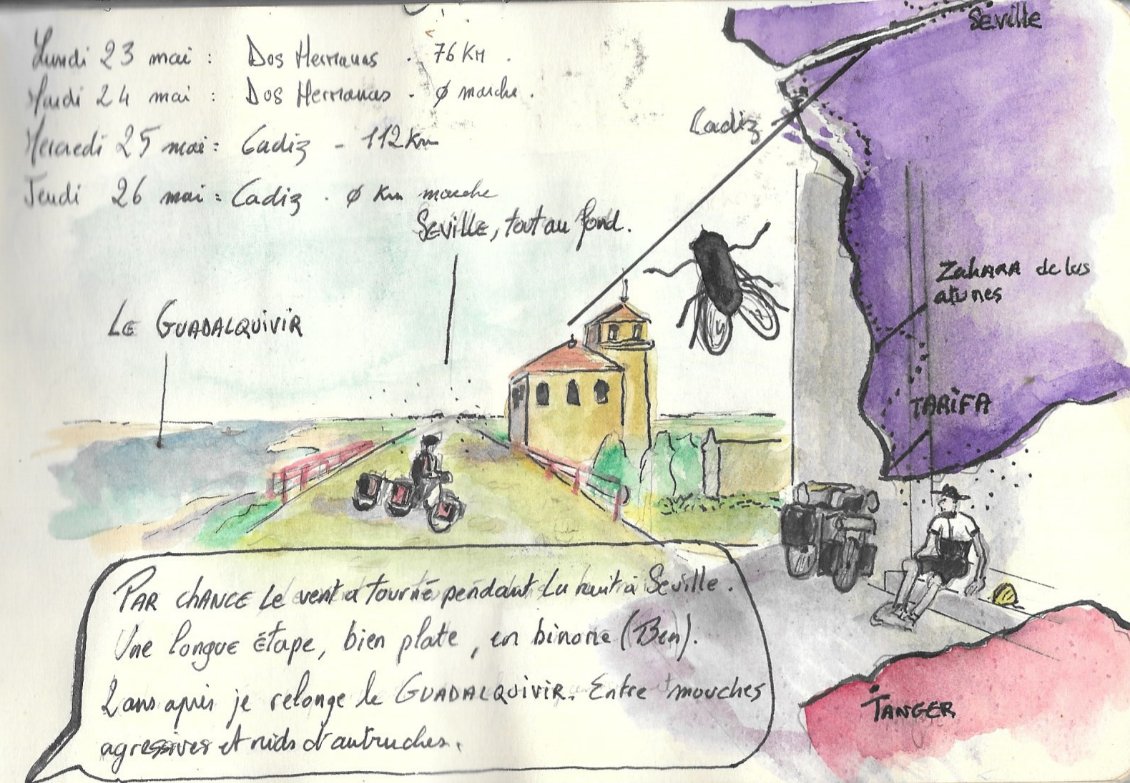 Lundi 23 mai : Dos Hermanas . 76 KM .
Mardi 24 mai : Dos Hermanas . Ø marche .
Mercredi 25 mai : Cadiz - 112 Km
Jeudi 26 mai : Cadiz . Ø Km marche
SEVILLE, tout au fond.
LE GUADALQUIVIR
SEVILLE
Cadiz
ZAHARA de los
atunes
TARIFA
TANGER
PAR CHANCE Le vent a tourné pendant La nuit à Seville .
Une longue étape, bien plate, en binome (Ben).
2 ans après je relonge le GUADALQUIVIR. Entre mouches
agressives et nids d'autruches.